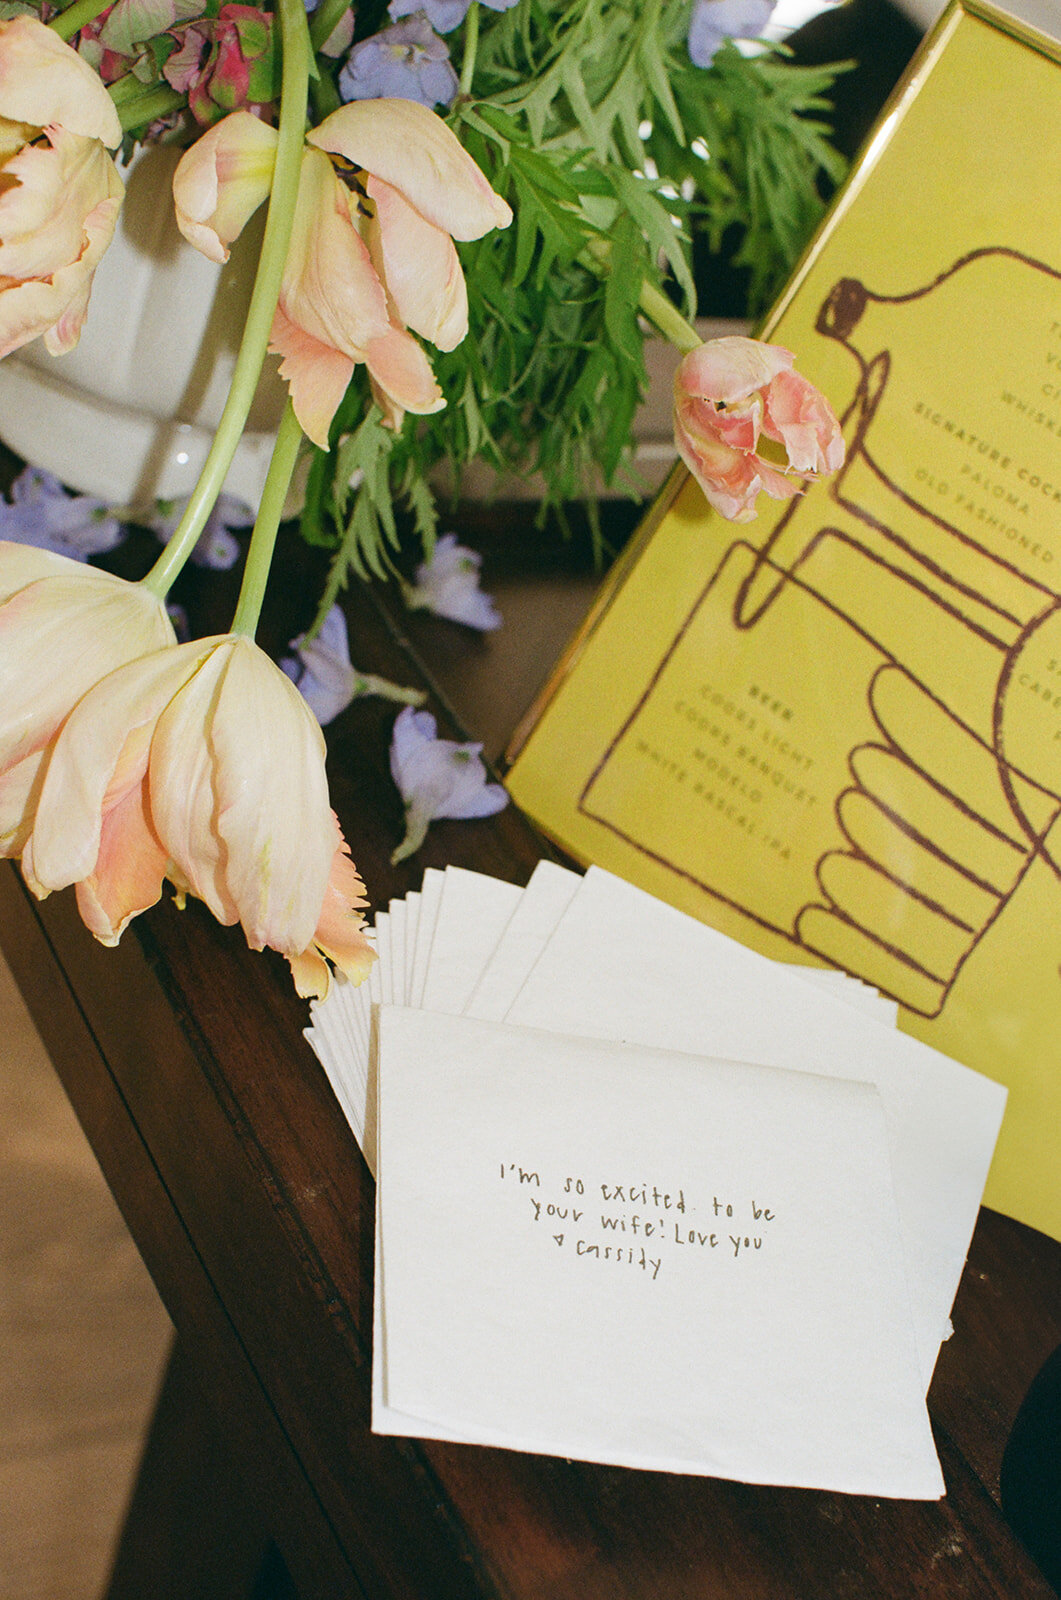 SIGNATURE
PALOMA
OLD FASHIONED
BEER
COORS LIGHT
COORS BANQUET
MODELO
WHITE RASCAL IPA
I'm so excited to be
your wife! Love you
♡ cassidy